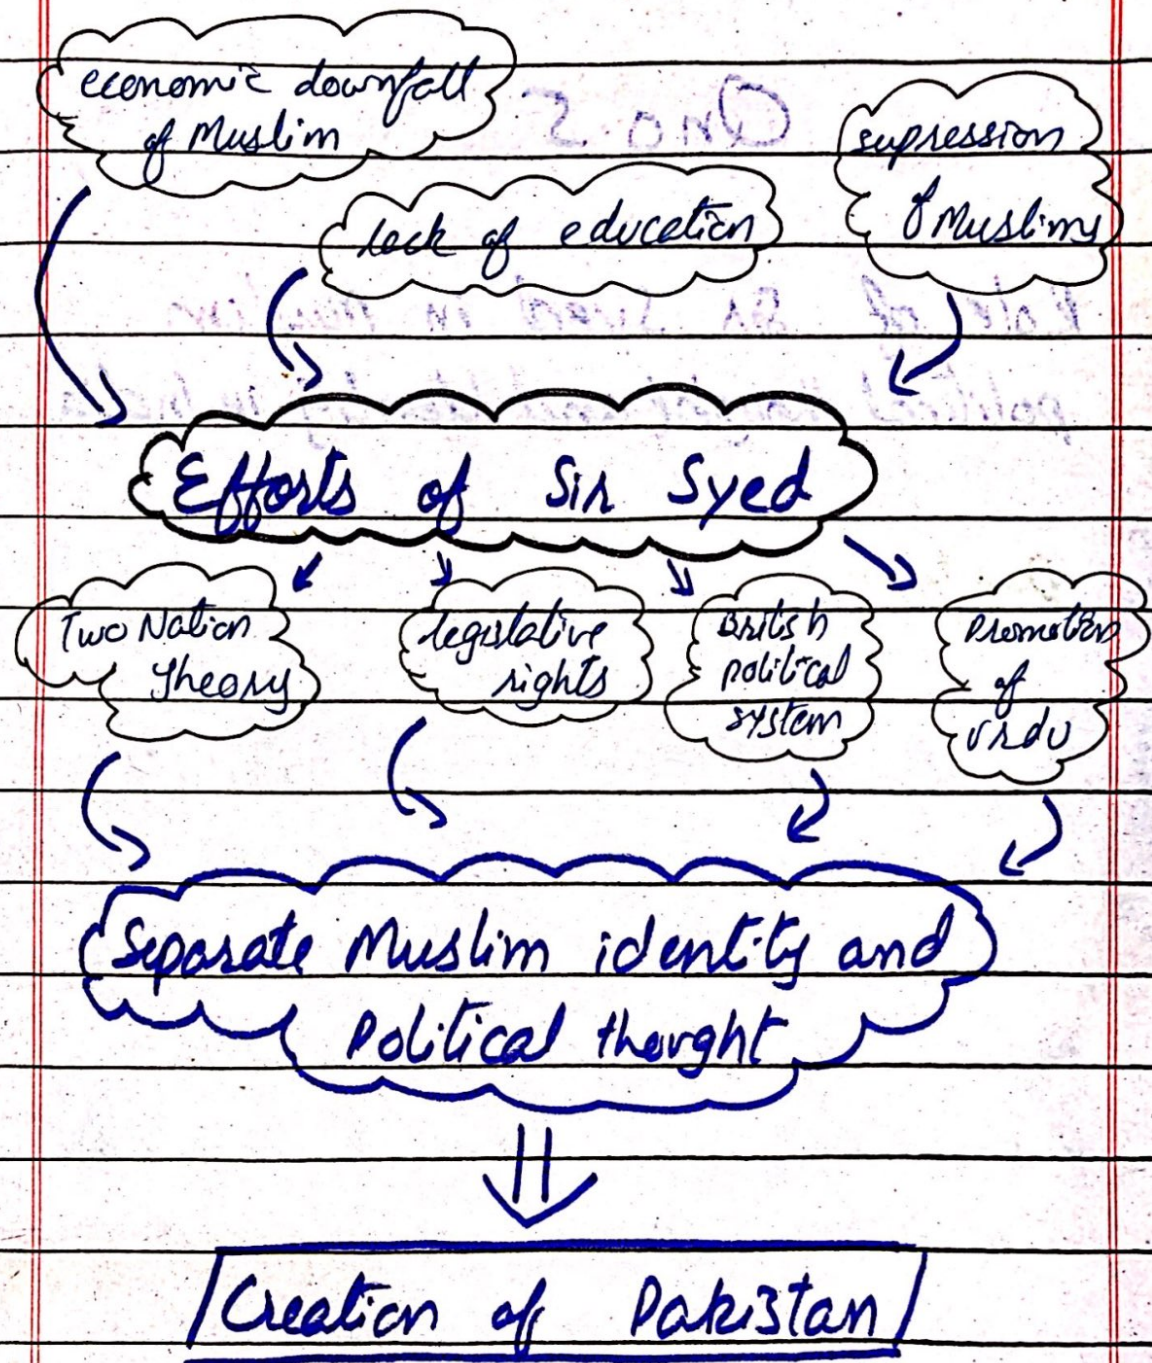 economic downfall
of Muslim
Q no 5
supression
of Muslims
lack of education
Role of Sir Syed in Muslim
political
Efforts of Sir Syed
Two Nation
Theory
legislative
rights
British
political
system
Promotion
of
urdu
Separate Muslim identity and
Political thought
Creation of Pakistan